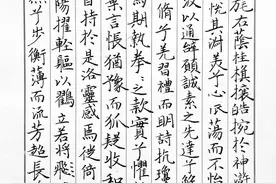 旄右蔭桂旗攘皓腕於神滸
悅其淑美兮心振蕩而不怡
波以通辭願誠素之先達兮解
脩兮羌習禮而明詩抗瓊
為期執拳〻之款實兮懼
棄言悵猶豫而狐疑收和
自持於是洛靈感焉徙倚
陽擢輕軀以鶴立若將飛
烈兮步衡薄而流芳超長